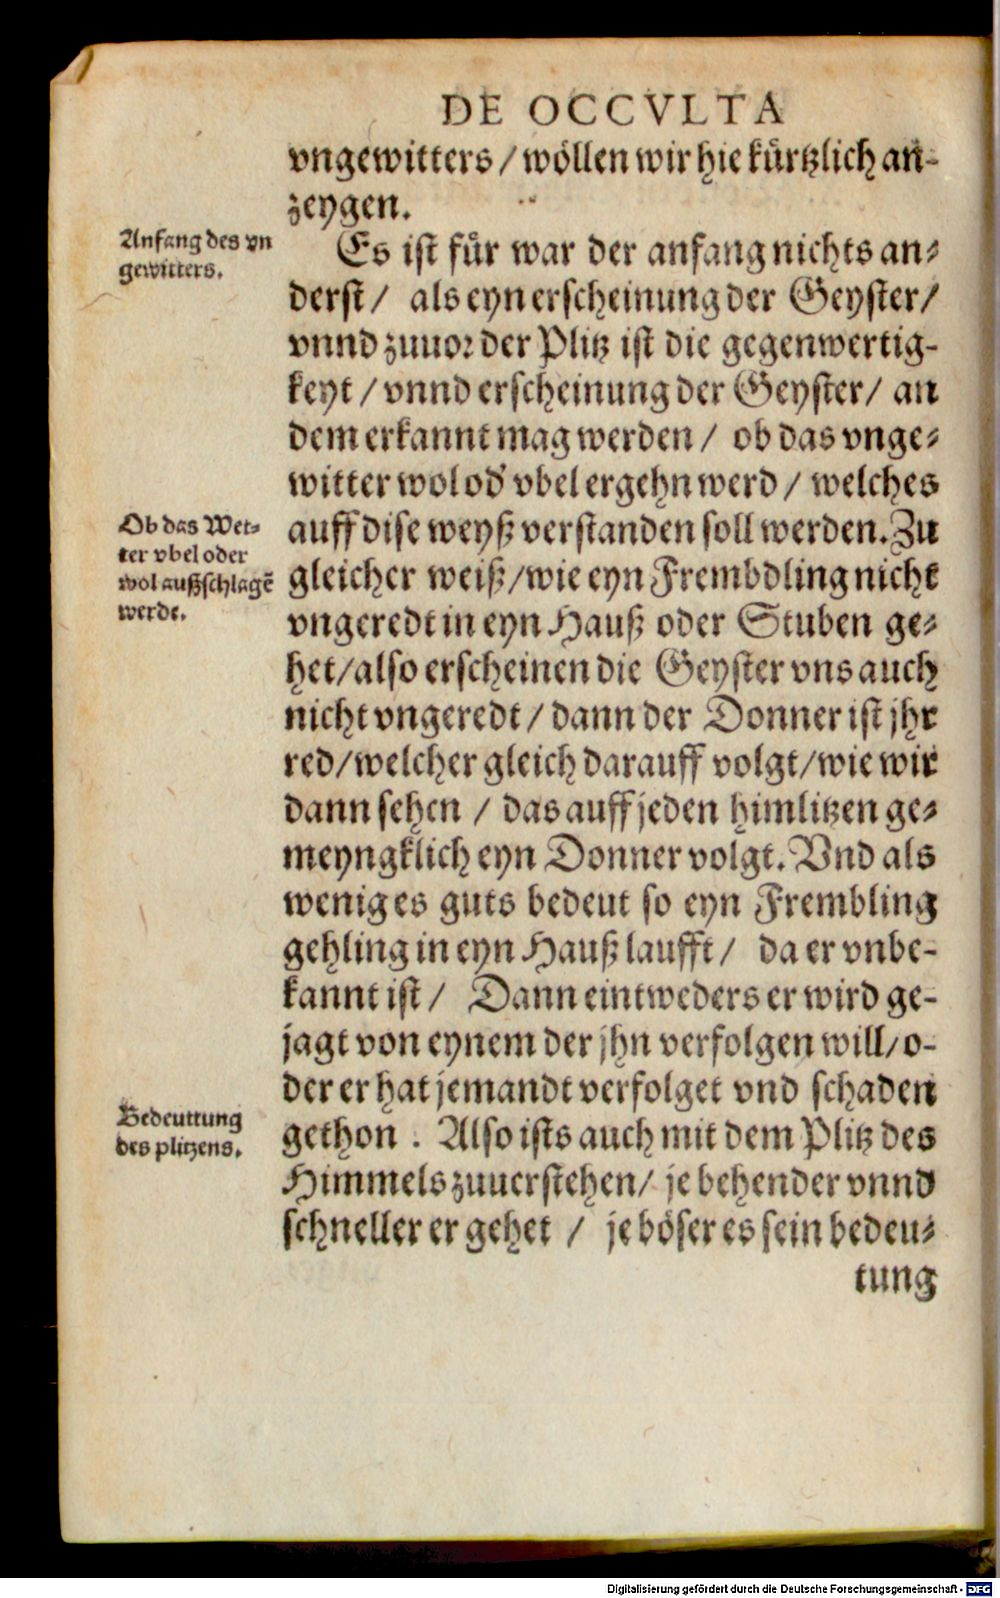 DE OCCVLTA
vngewitters / wöllen wir hie kürtzlich an-
zeygen.
Anfang des vn
gewitters.
Es ist für war der anfang nichts an-
derst / als eyn erscheinung der Geyster /
vnnd zuuor der Plitz ist die gegenwertig-
keyt / vnnd erscheinung der Geyster / an
dem erkannt mag werden / ob das vnge-
witter wol od' vbel ergehn werd / welches
Ob das Wet-
ter vbel oder
wol außschlagē
werde.
auff dise weyß verstanden soll werden. Zu
gleicher weiß / wie eyn Frembdling nicht
vngeredt in eyn Hauß oder Stuben ge-
het / also erscheinen die Geyster vns auch
nicht vngeredt / dann der Donner ist jhr
red / welcher gleich darauff volgt / wie wir
dann sehen / das auff jeden himlitzen ge-
meyngklich eyn Donner volgt. Vnd als
wenig es guts bedeut so eyn Frembling
gehling in eyn Hauß laufft / da er vnbe-
kannt ist / Dann eintweders er wird ge-
jagt von eynem der jhn verfolgen will / o-
der er hat jemandt verfolget vnd schaden
Bedeuttung
des plitzens.
gethon . Also ists auch mit dem Plitz des
Himmels zuuerstehen / je behender vnnd
schneller er gehet / je böser es sein bedeu-
tung
Digitalisierung gefördert durch die Deutsche Forschungsgemeinschaft - DFG